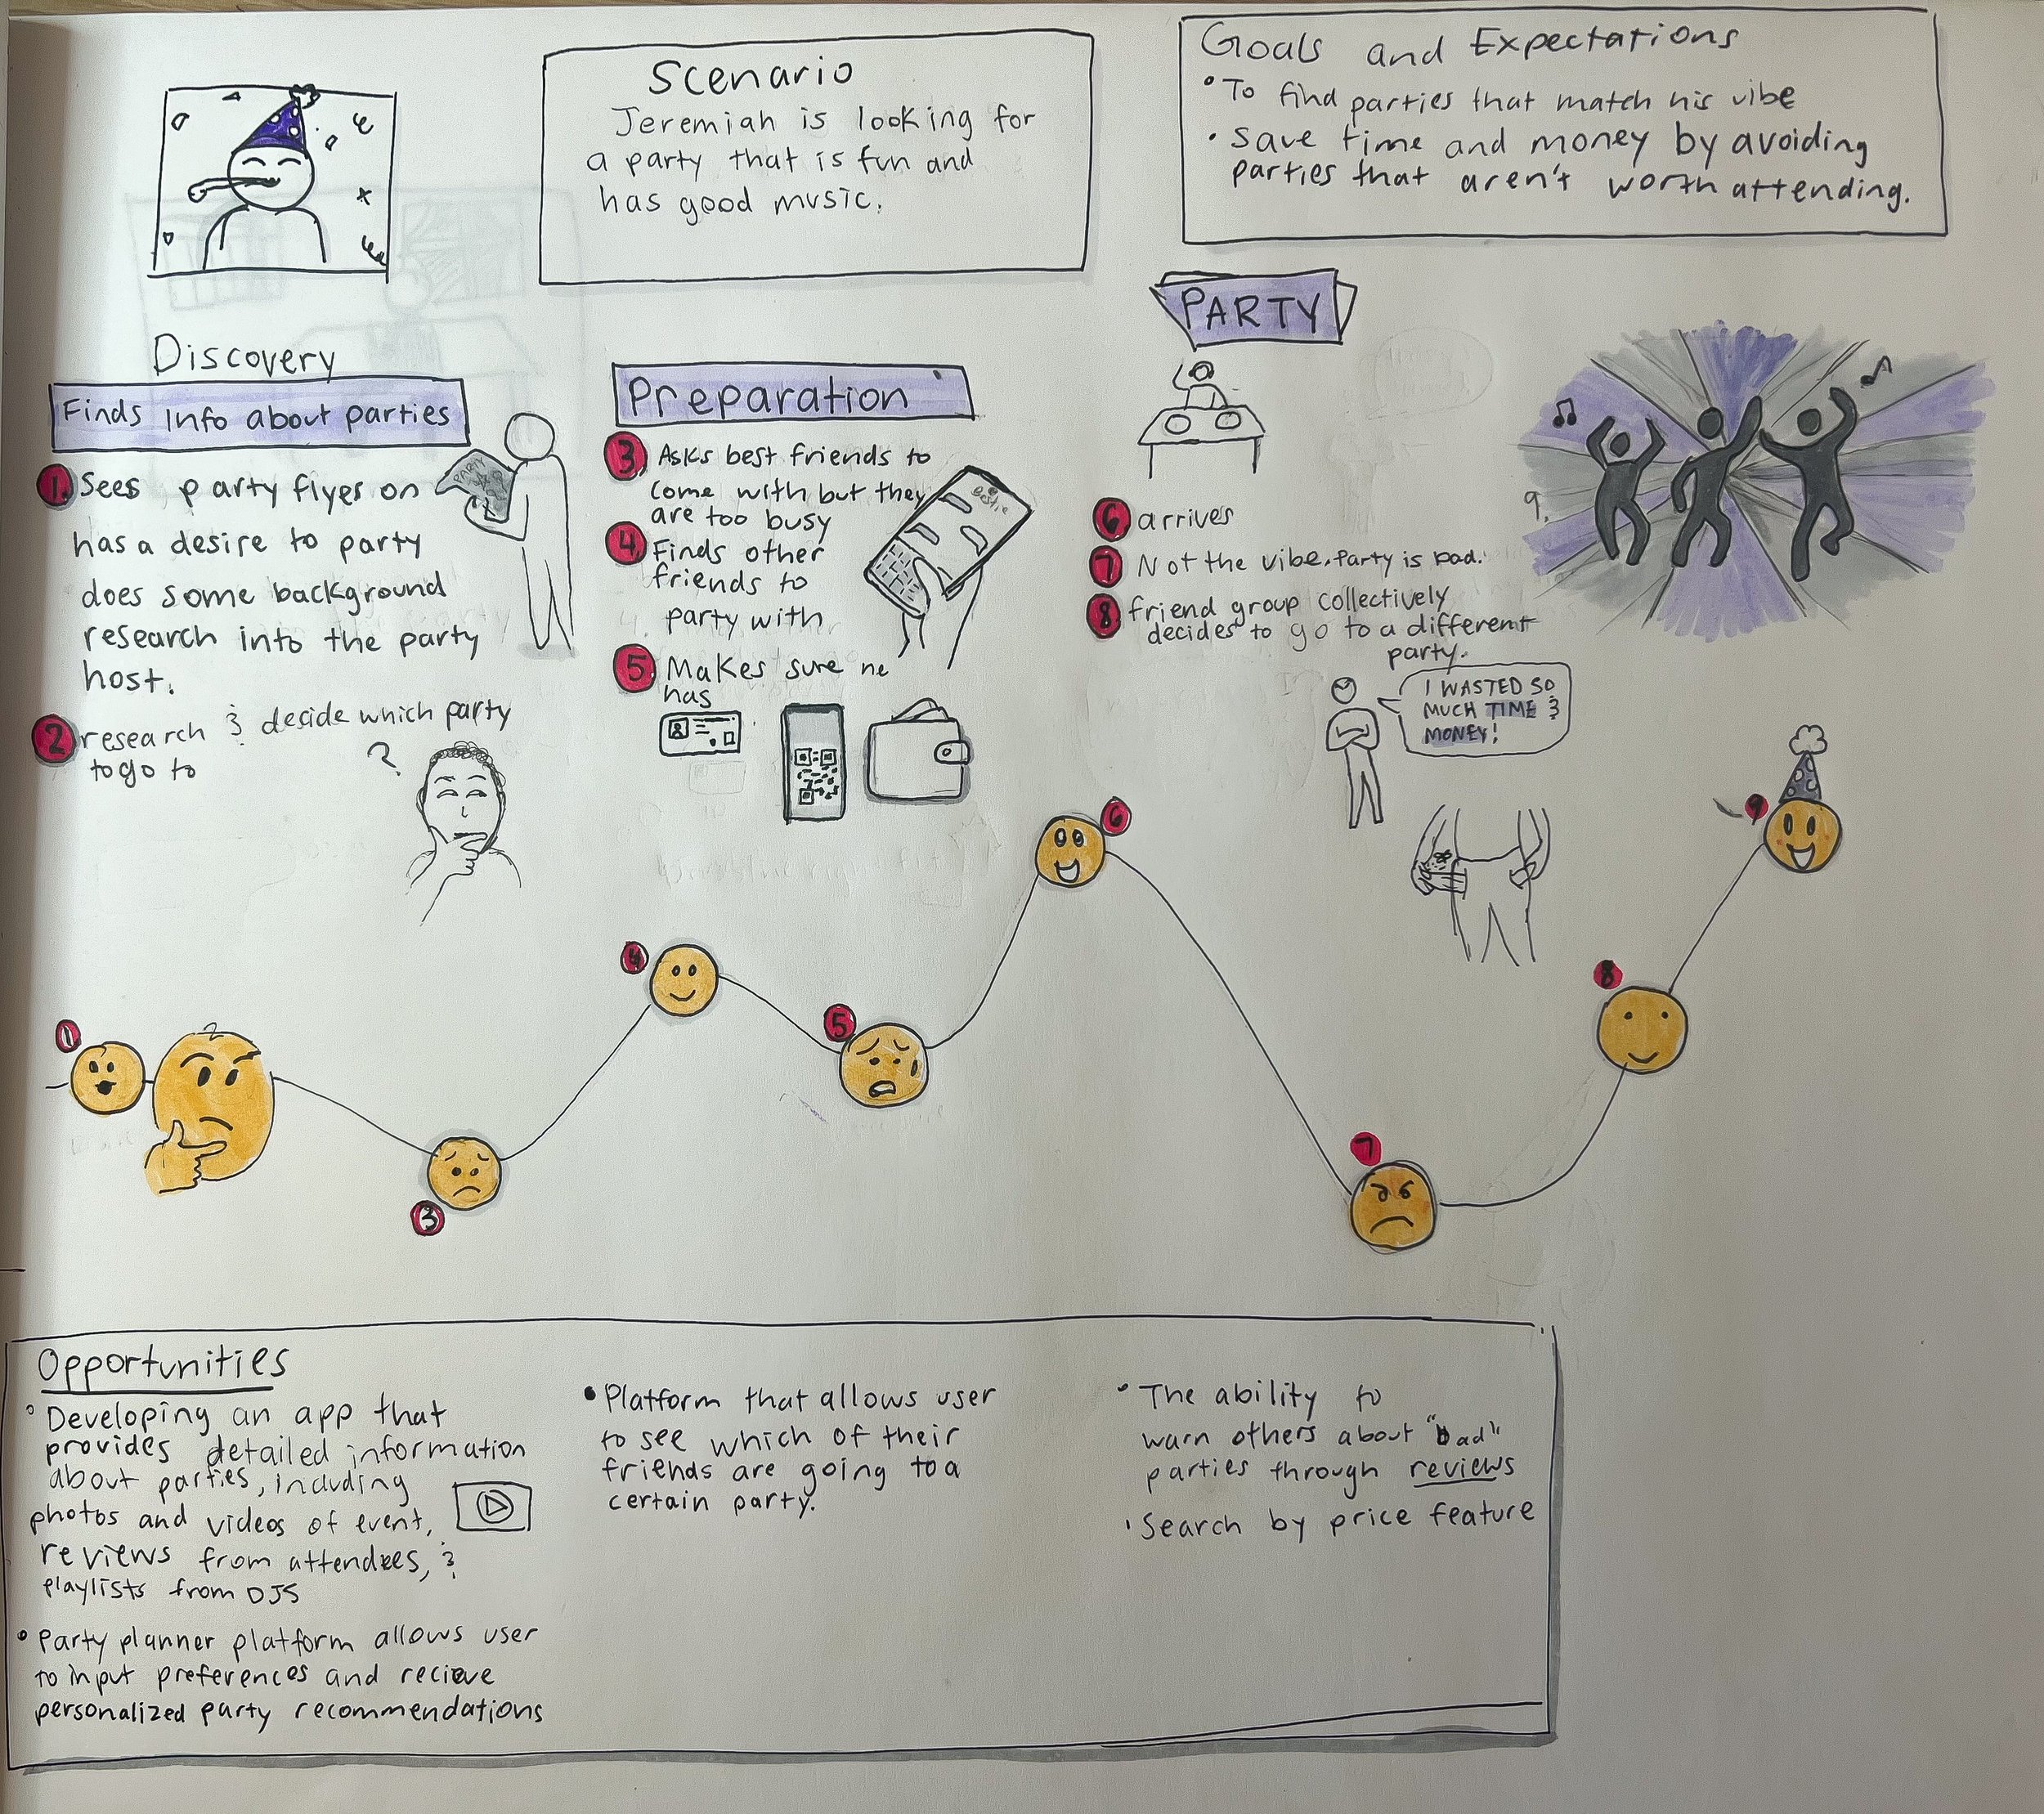 Scenario
Jeremiah is looking for
a party that is fun and
has good music.
Goals and Expectations
• To find parties that match his vibe
• Save time and money by avoiding
parties that aren't worth attending.
Discovery
Finds Info about parties
1. Sees party flyes on
has a desire to party
does some background
research into the party
host.
2 research & decide which party
to go to
PARTY
?
Preparation
3 Asks best friends to
come with but they
are too busy
4 Finds other
friends to
party with
5 Makes sure he
has
Bestie
PARTY
6 arrives
7 Not the vibe. Party is bad.
8 friend group collectively
decides to go to a different
party.
9.
I WASTED SO
MUCH TIME &
MONEY!
1
3
4
5
6
7
8
9
Opportunities
• Developing an app that
provides detailed information
about parties, including
photos and videos of event,
reviews from attendees, &
playlists from DJS
• Party planner platform allows user
to input preferences and recieve
personalized party recommendations
• Platform that allows user
to see which of their
friends are going to a
certain party.
• The ability to
warn others about "bad"
parties through reviews
• Search by price feature